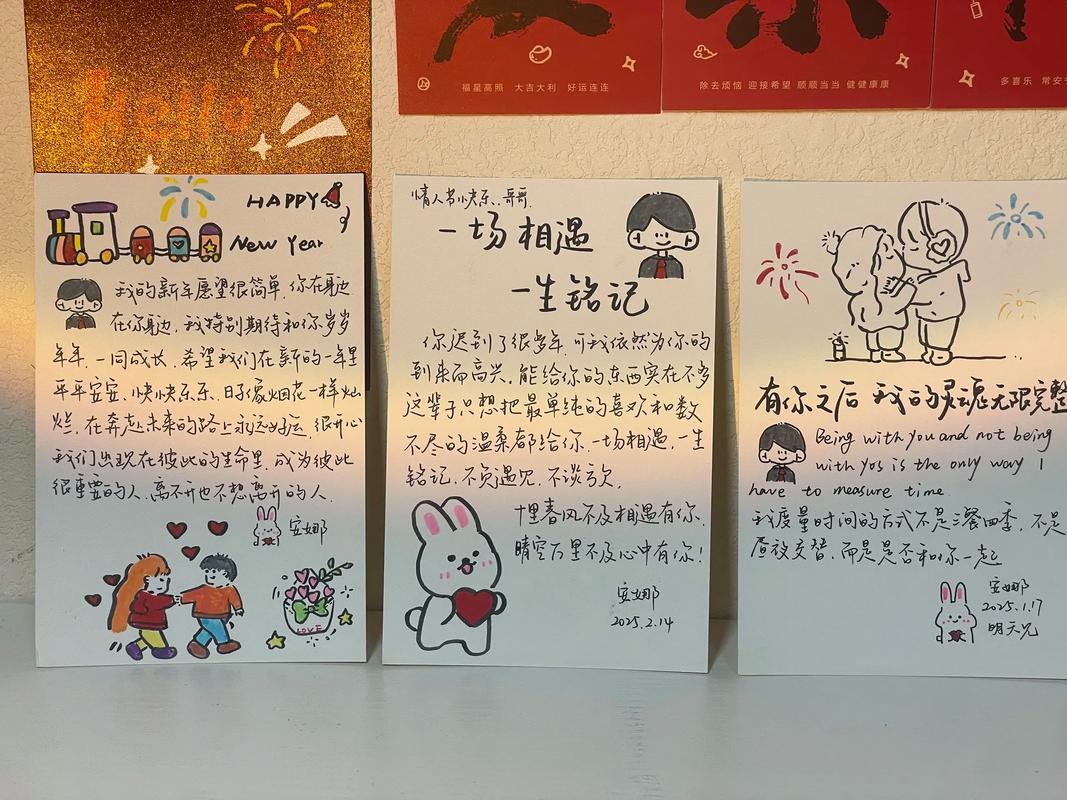 Hello
福星高照 大吉大利 好运连连
除去烦恼 迎接希望 顺顺当当 健健康康
多喜乐 常安
HAPPY
New Year
我的新年愿望很简单,你在身边
在你身边,我特别期待和你岁岁
年年,一同成长,希望我们在新的一年里
平平安安、快快乐乐、日子像烟花一样灿
烂,在奔赴未来的路上永远好运,很开心
我们出现在彼此的生命里,成为彼此
很重要的人,离不开也不想离开的人.
安娜
LOVE
情人节快乐,哥哥.
一场相遇
一生铭记
你迟到了很多年,可我依然为你的
到来而高兴,能给你的东西实在不多
这辈子只想把最单纯的喜欢和数
不尽的温柔都给你,一场相遇,一生
铭记,不负遇见,不谈亏欠,
十里春风不及相遇有你,
晴空万里不及心中有你!
安娜
2025.2.14
有你之后 我的灵魂无限完整
Being with you and not being
with yos is the only way I
have to measure time
我度量时间的方式不是三餐四季,不是
昼夜交替,而是是否和你一起
安娜
2025.1.17
明天见